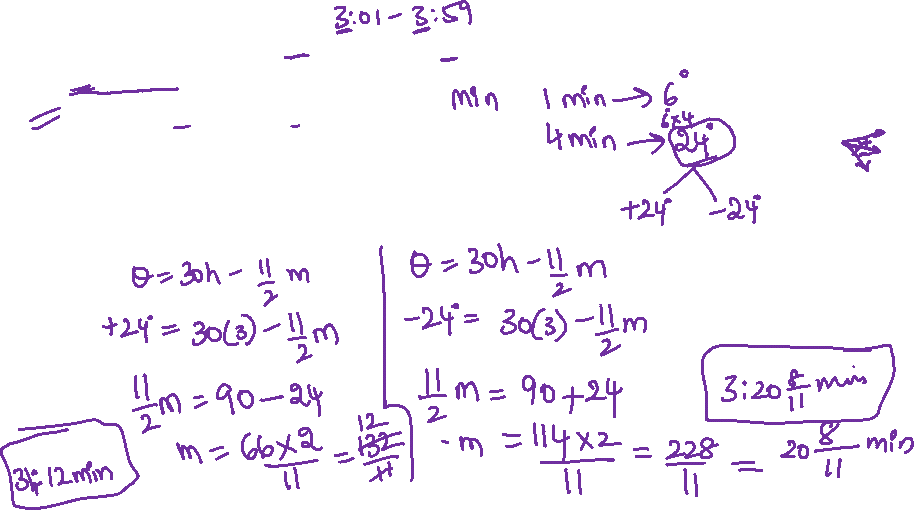 3:01 - 3:59
min 1 min → 6°
6×4
4 min → 24°
+24° -24°
θ = 30h - 11/2 m
+24° = 30(3) - 11/2 m
11/2 m = 90 - 24
m = 66×2/11 = 132/11 12
3 12 min
θ = 30h - 11/2 m
-24° = 30(3) - 11/2 m
11/2 m = 90 + 24
m = 114×2/11 = 228/11 = 20 8/11 min
3:20 8/11 min